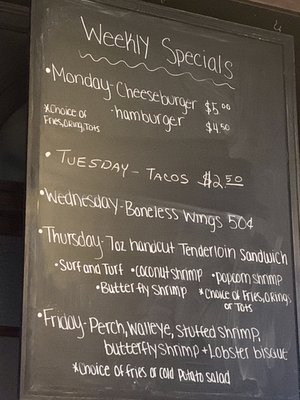 Weekly Specials
• Monday - Cheeseburger $5.00
*Choice of - hamburger $4.50
Fries, O.Ring, Tots
• TUESDAY - TACOS $2.50
• Wednesday - Boneless Wings 50¢
• Thursday - 7oz handcut Tenderloin Sandwich
• Surf and Turf • coconut shrimp • popcorn shrimp
• Butterfly Shrimp *Choice of Fries, O.Ring,
or Tots
• Friday - Perch, Walleye, Stuffed Shrimp,
butterfly Shrimp + Lobster bisque
*Choice of fries or cold Potato salad